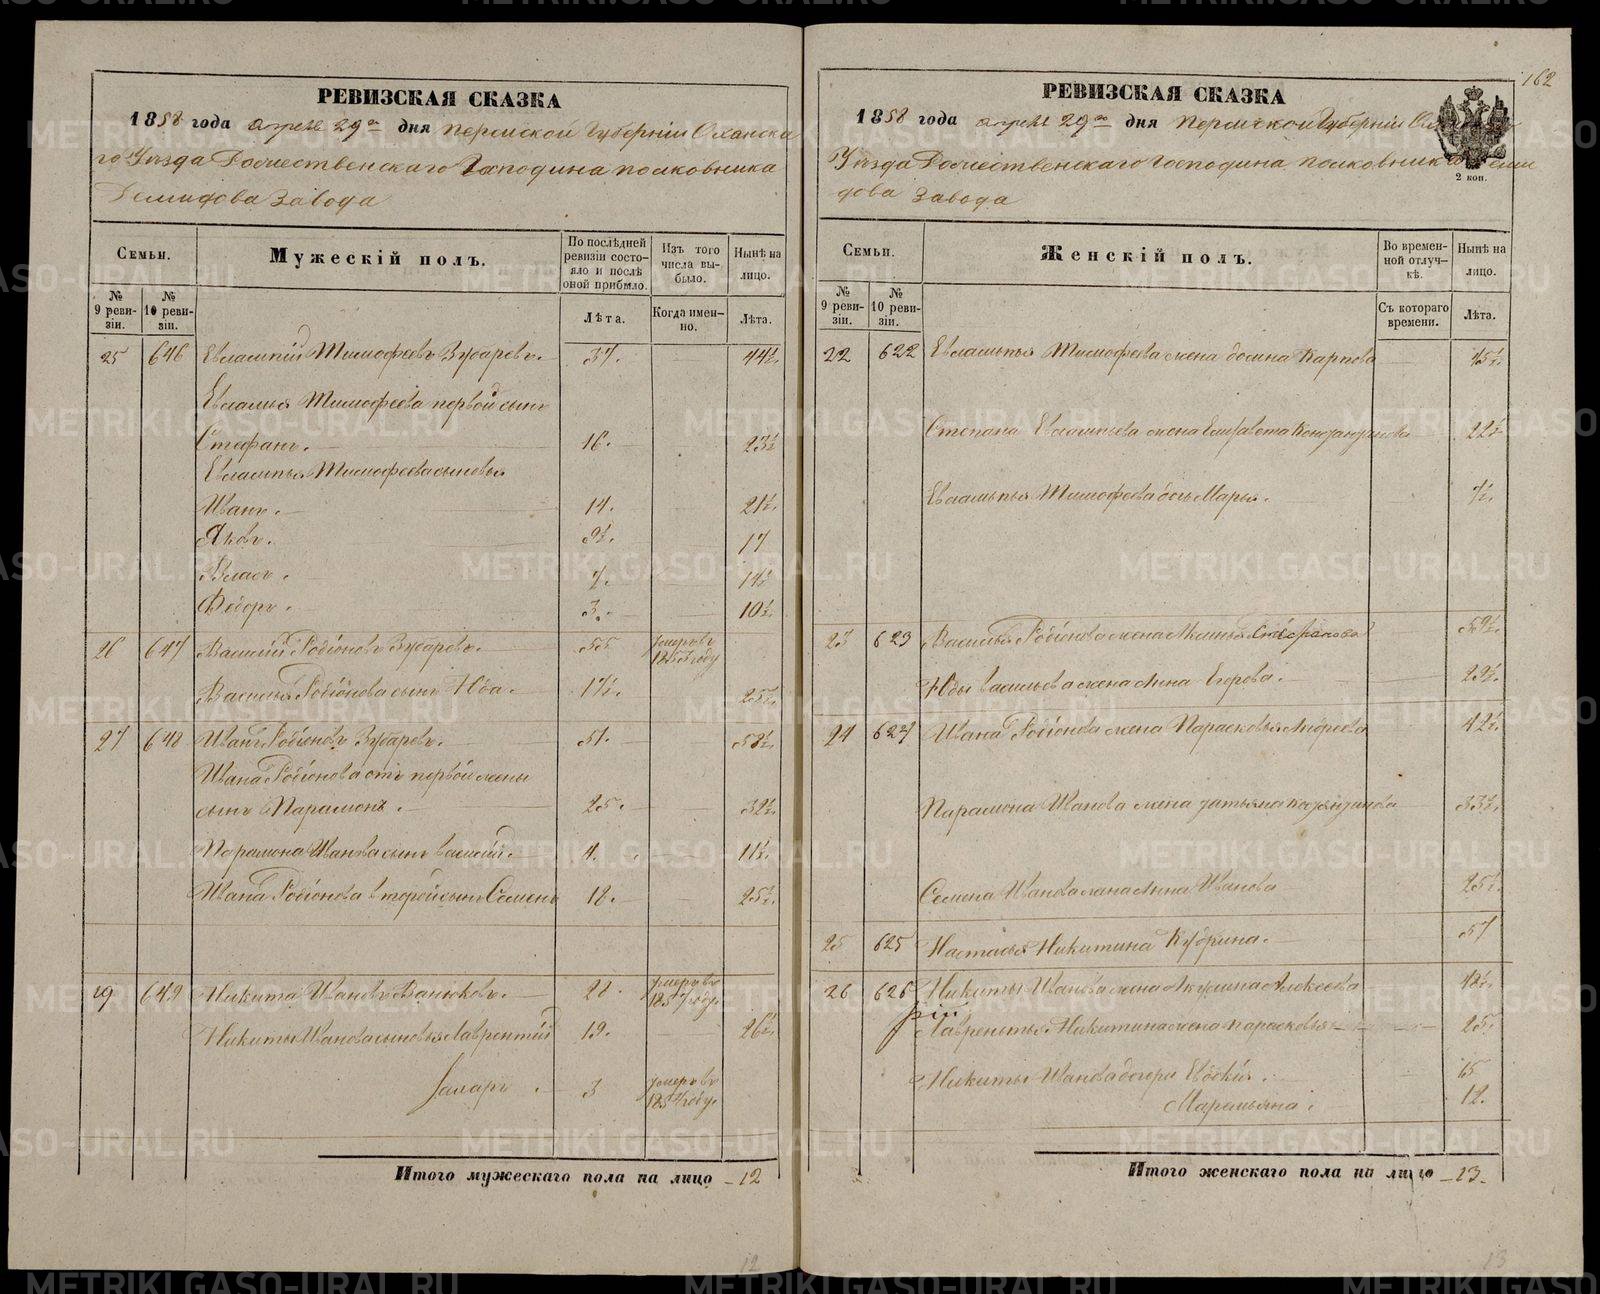 РЕВИЗСКАЯ СКАЗКА
1858 года апреля 29го дня Пермской Губернiи Оханска
го Уезда Рождественскаго Господина полковника
Демидова Завода
Семьи.
Мужескiй полъ.
По последней ревизiи состояло и после оной прибыло.
Изъ того числа выбыло.
Ныне на лицо.
№ 9 ревизiи.
№ 10 ревизiи.
Лета.
Когда именно.
Лета.
25 646 Евлампiй Тимофеевъ Зубаревъ. 37. 44½.
Евлампья Тимофеева первой сынъ
Стефанъ. 16. 23½
Евлампья Тимофеева сыновья
Иванъ. 14. 21½.
Яковъ. 9½. 17
Власъ. 7. 14½
Федоръ. 3. 10½.
26 647 Василiй Родiоновъ Зубаревъ. 55 умеръ въ 1855 году
Василья Родiонова сынъ Юда. 17½. 25½.
27 648 Иванъ Родiоновъ Зубаревъ. 51. 58½.
Ивана Родiонова отъ первой жены
сынъ Парамонъ. 25. 32½.
Парамона Иванова сынъ Василiй. 4. 11½.
Ивана Родiонова второй сынъ Семенъ 18. 25½.
29 649 Никита Ивановъ Ванюковъ. 28. умеръ въ 1857 году.
Никиты Иванова сыновья Лаврентiй 19. 26½.
Захаръ. 3 умеръ въ году.
Итого мужескаго пола на лицо 12
12
162
РЕВИЗСКАЯ СКАЗКА
1858 года апреля 29го дня Пермской Губернiи
Уезда Рождественскаго Господина полковника Деми
дова Завода
2 коп.
Семьи.
Женскiй полъ.
Во временной отлучке.
Ныне на лицо.
№ 9 ревизiи.
№ 10 ревизiи.
Съ котораго времени.
Лета.
22 622 Евлампья Тимофеева жена домна Карпова 45½.
Степана Евлампьева жена Елизавета 22½
Евлампья Тимофеева дочь Марья. 7½.
23 623 Василья Родiонова жена Стефанова 59½.
Юды васильева жена Анна Егорова. 29½.
24 624 Ивана Родiонова жена Парасковья Андреева 42½.
Парамона Иванова жена татьяна 33½.
Семена Иванова жена Анна Иванова 25½.
25 625 Настасья Никитина Кудрина. 57
26 626 Никиты Иванова жена Акулина Алексеева 48½.
Лаврентья Никитина жена парасковья 25.
Никиты Иванова дочери Евдокiя. 15
Маремьяна. 12.
Итого женскаго пола на лицо 13.
13
METRIKI.GASO-URAL.RU